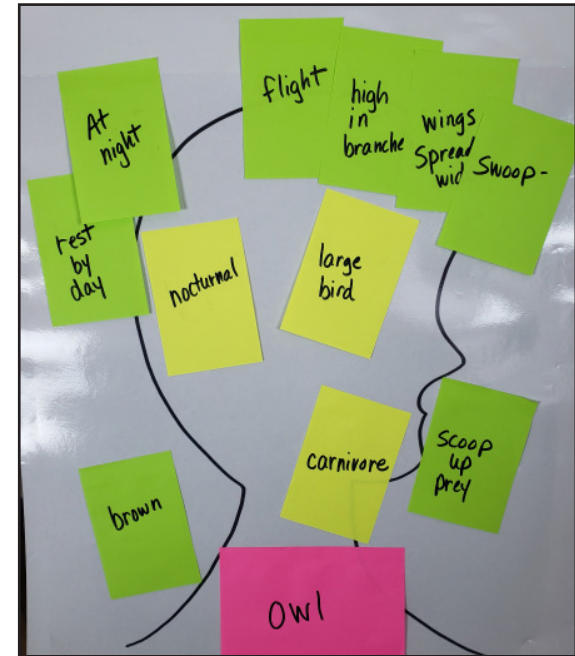 At
night
flight
high
in
branche
wings
Spread
wid
Swoop-
rest
by
day
nocturnal
large
bird
carnivore
scoop
up
prey
brown
owl